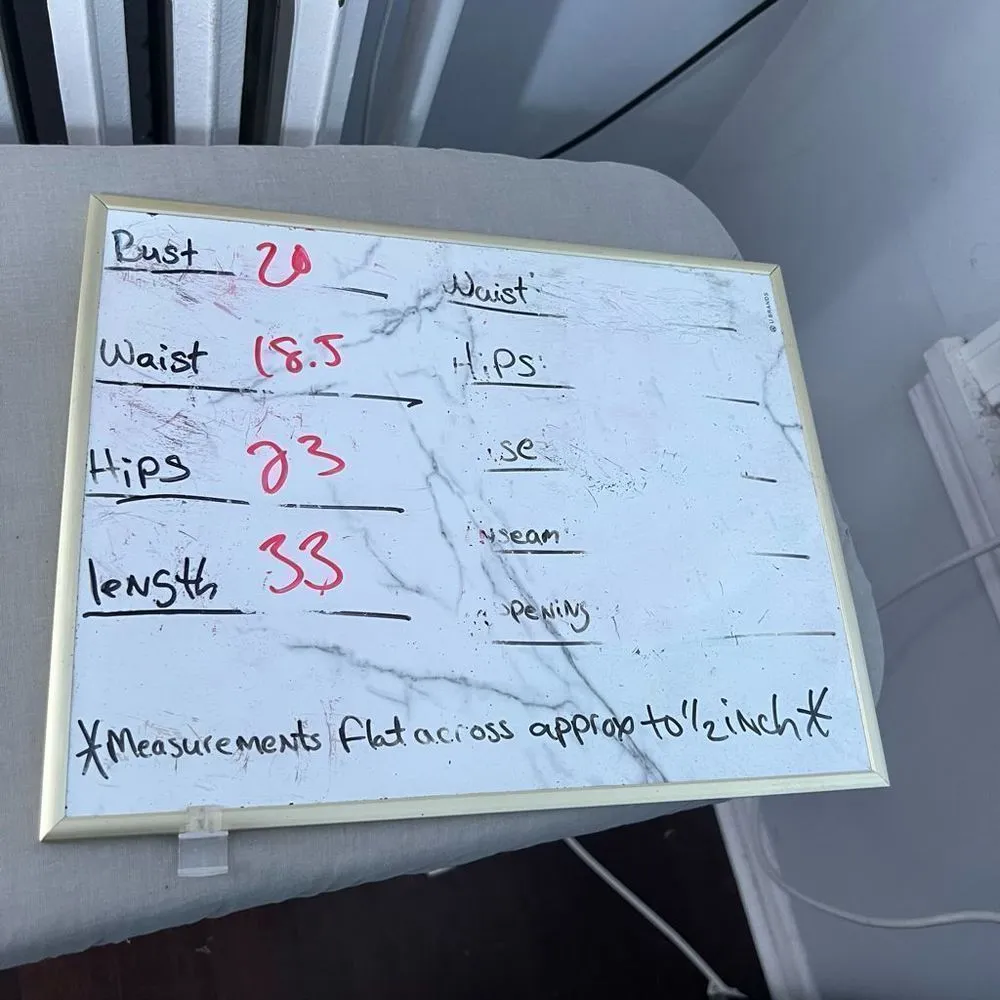 Bust 20
Waist 18.5
Hips 23
length 33
Waist
Hips:
se
Nseam
pening
*Measurements flat across approx to 1/2 inch*
U BRANDS